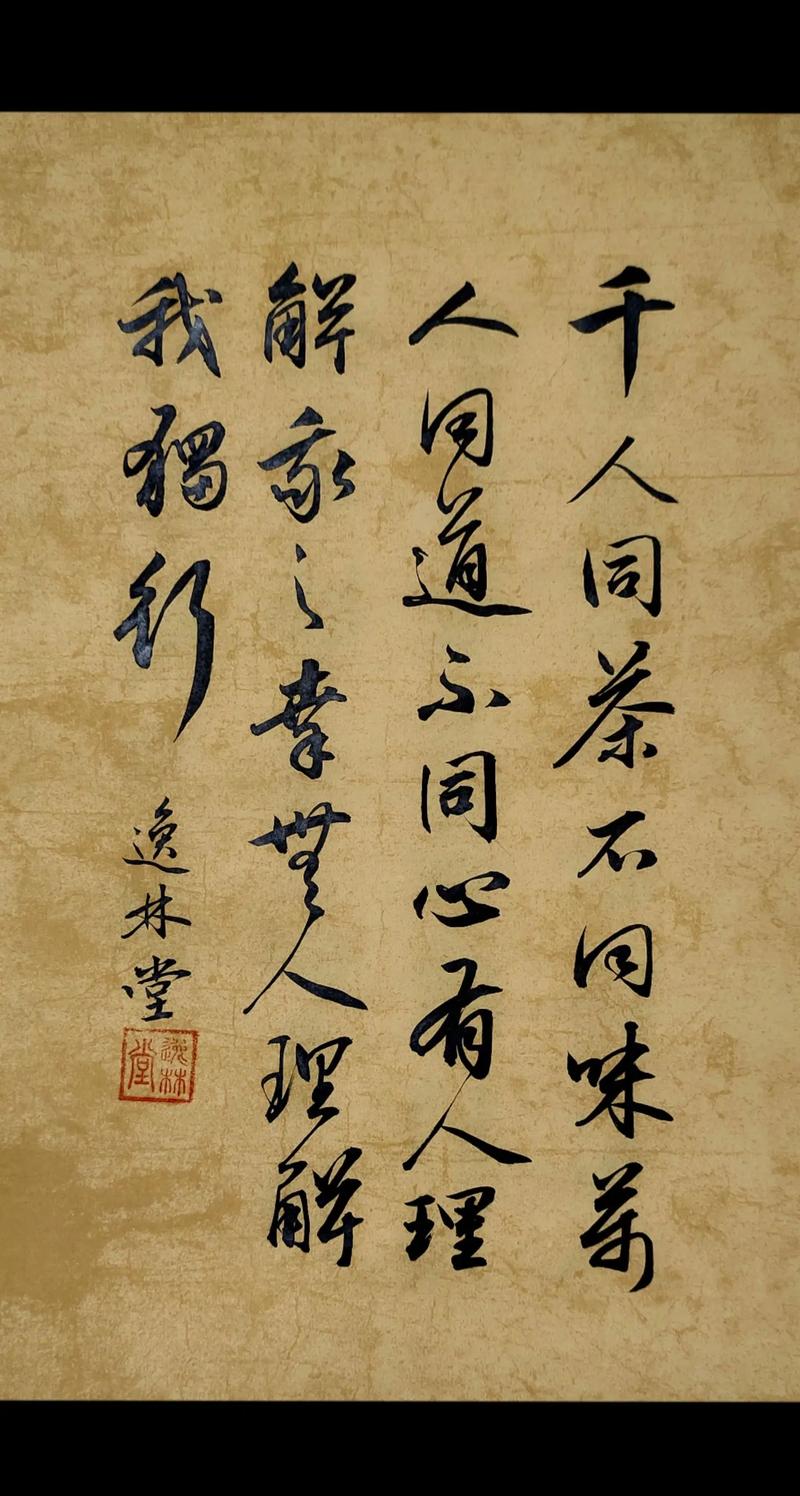 千人同茶不同味萬
人同道不同心有人理
解我之幸無人理解
我獨行
逸林堂
逸林堂